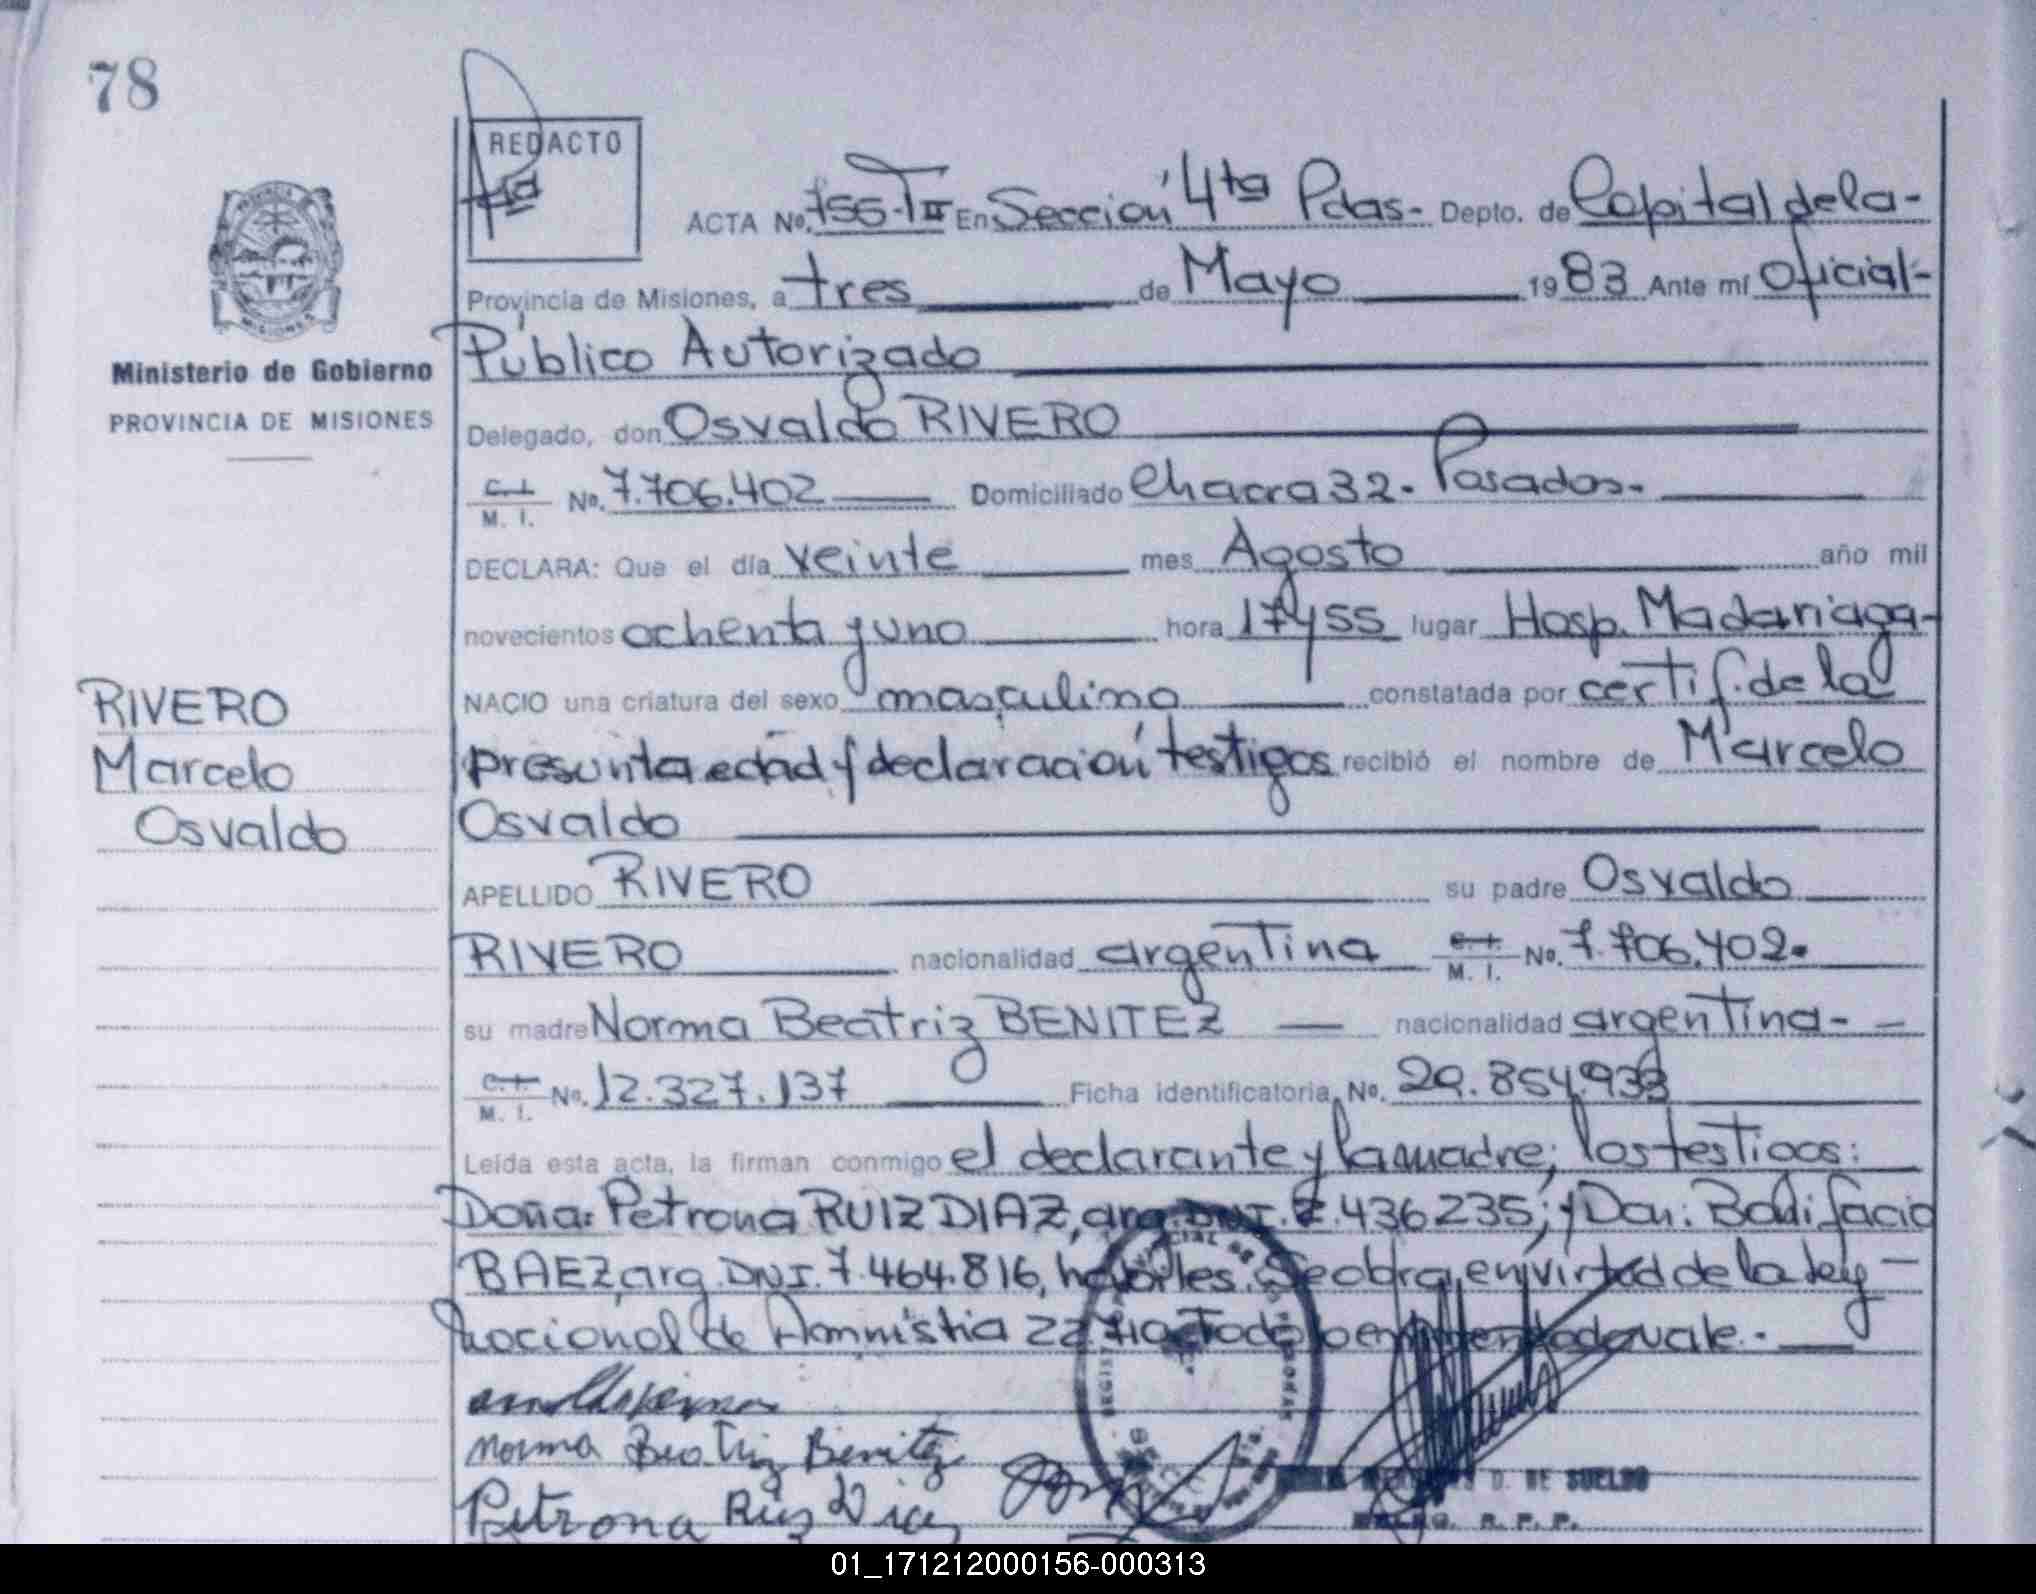 78
REDACTO
ACTA No. 755-TII En Sección 4ta Pdas- Depto. de Capital de la-
Provincia de Misiones, a tres de Mayo 1983 Ante mí Oficial-
Público Autorizado
Ministerio de Gobierno
PROVINCIA DE MISIONES
Delegado, don Osvaldo RIVERO
C.I. M. I. No. 7.706.402 Domiciliado Chacra 32- Posadas-
DECLARA: Que el día veinte mes Agosto año mil
novecientos ochenta y uno hora 17y55 lugar Hosp. Madariaga-
NACIO una criatura del sexo masculino constatada por certif. de la
presunta edad y declaración testigos recibió el nombre de Marcelo
Osvaldo
RIVERO
Marcelo
Osvaldo
APELLIDO RIVERO su padre Osvaldo
RIVERO nacionalidad argentina C.I. M. I. No. 7.706.402-
su madre Norma Beatriz BENITEZ nacionalidad argentina-
C.I. M. I. No. 12.327.137 Ficha identificatoria, No. 29.854.933
Leída esta acta, la firman conmigo el declarante y la madre; los testigos:
Doña: Petrona RUIZ DIAZ, arg. DNI. 436235; y Don: Bonifacio
BAEZ, arg. DNI. 7.464.816, habiles. Se obra en virtud de la ley-
nacional de Amnistia Todo lo enmendado vale.-
Norma Beatriz Benitez
Petrona Ruiz Diaz
D. DE SUELDO
R. P. P.
01_171212000156-000313